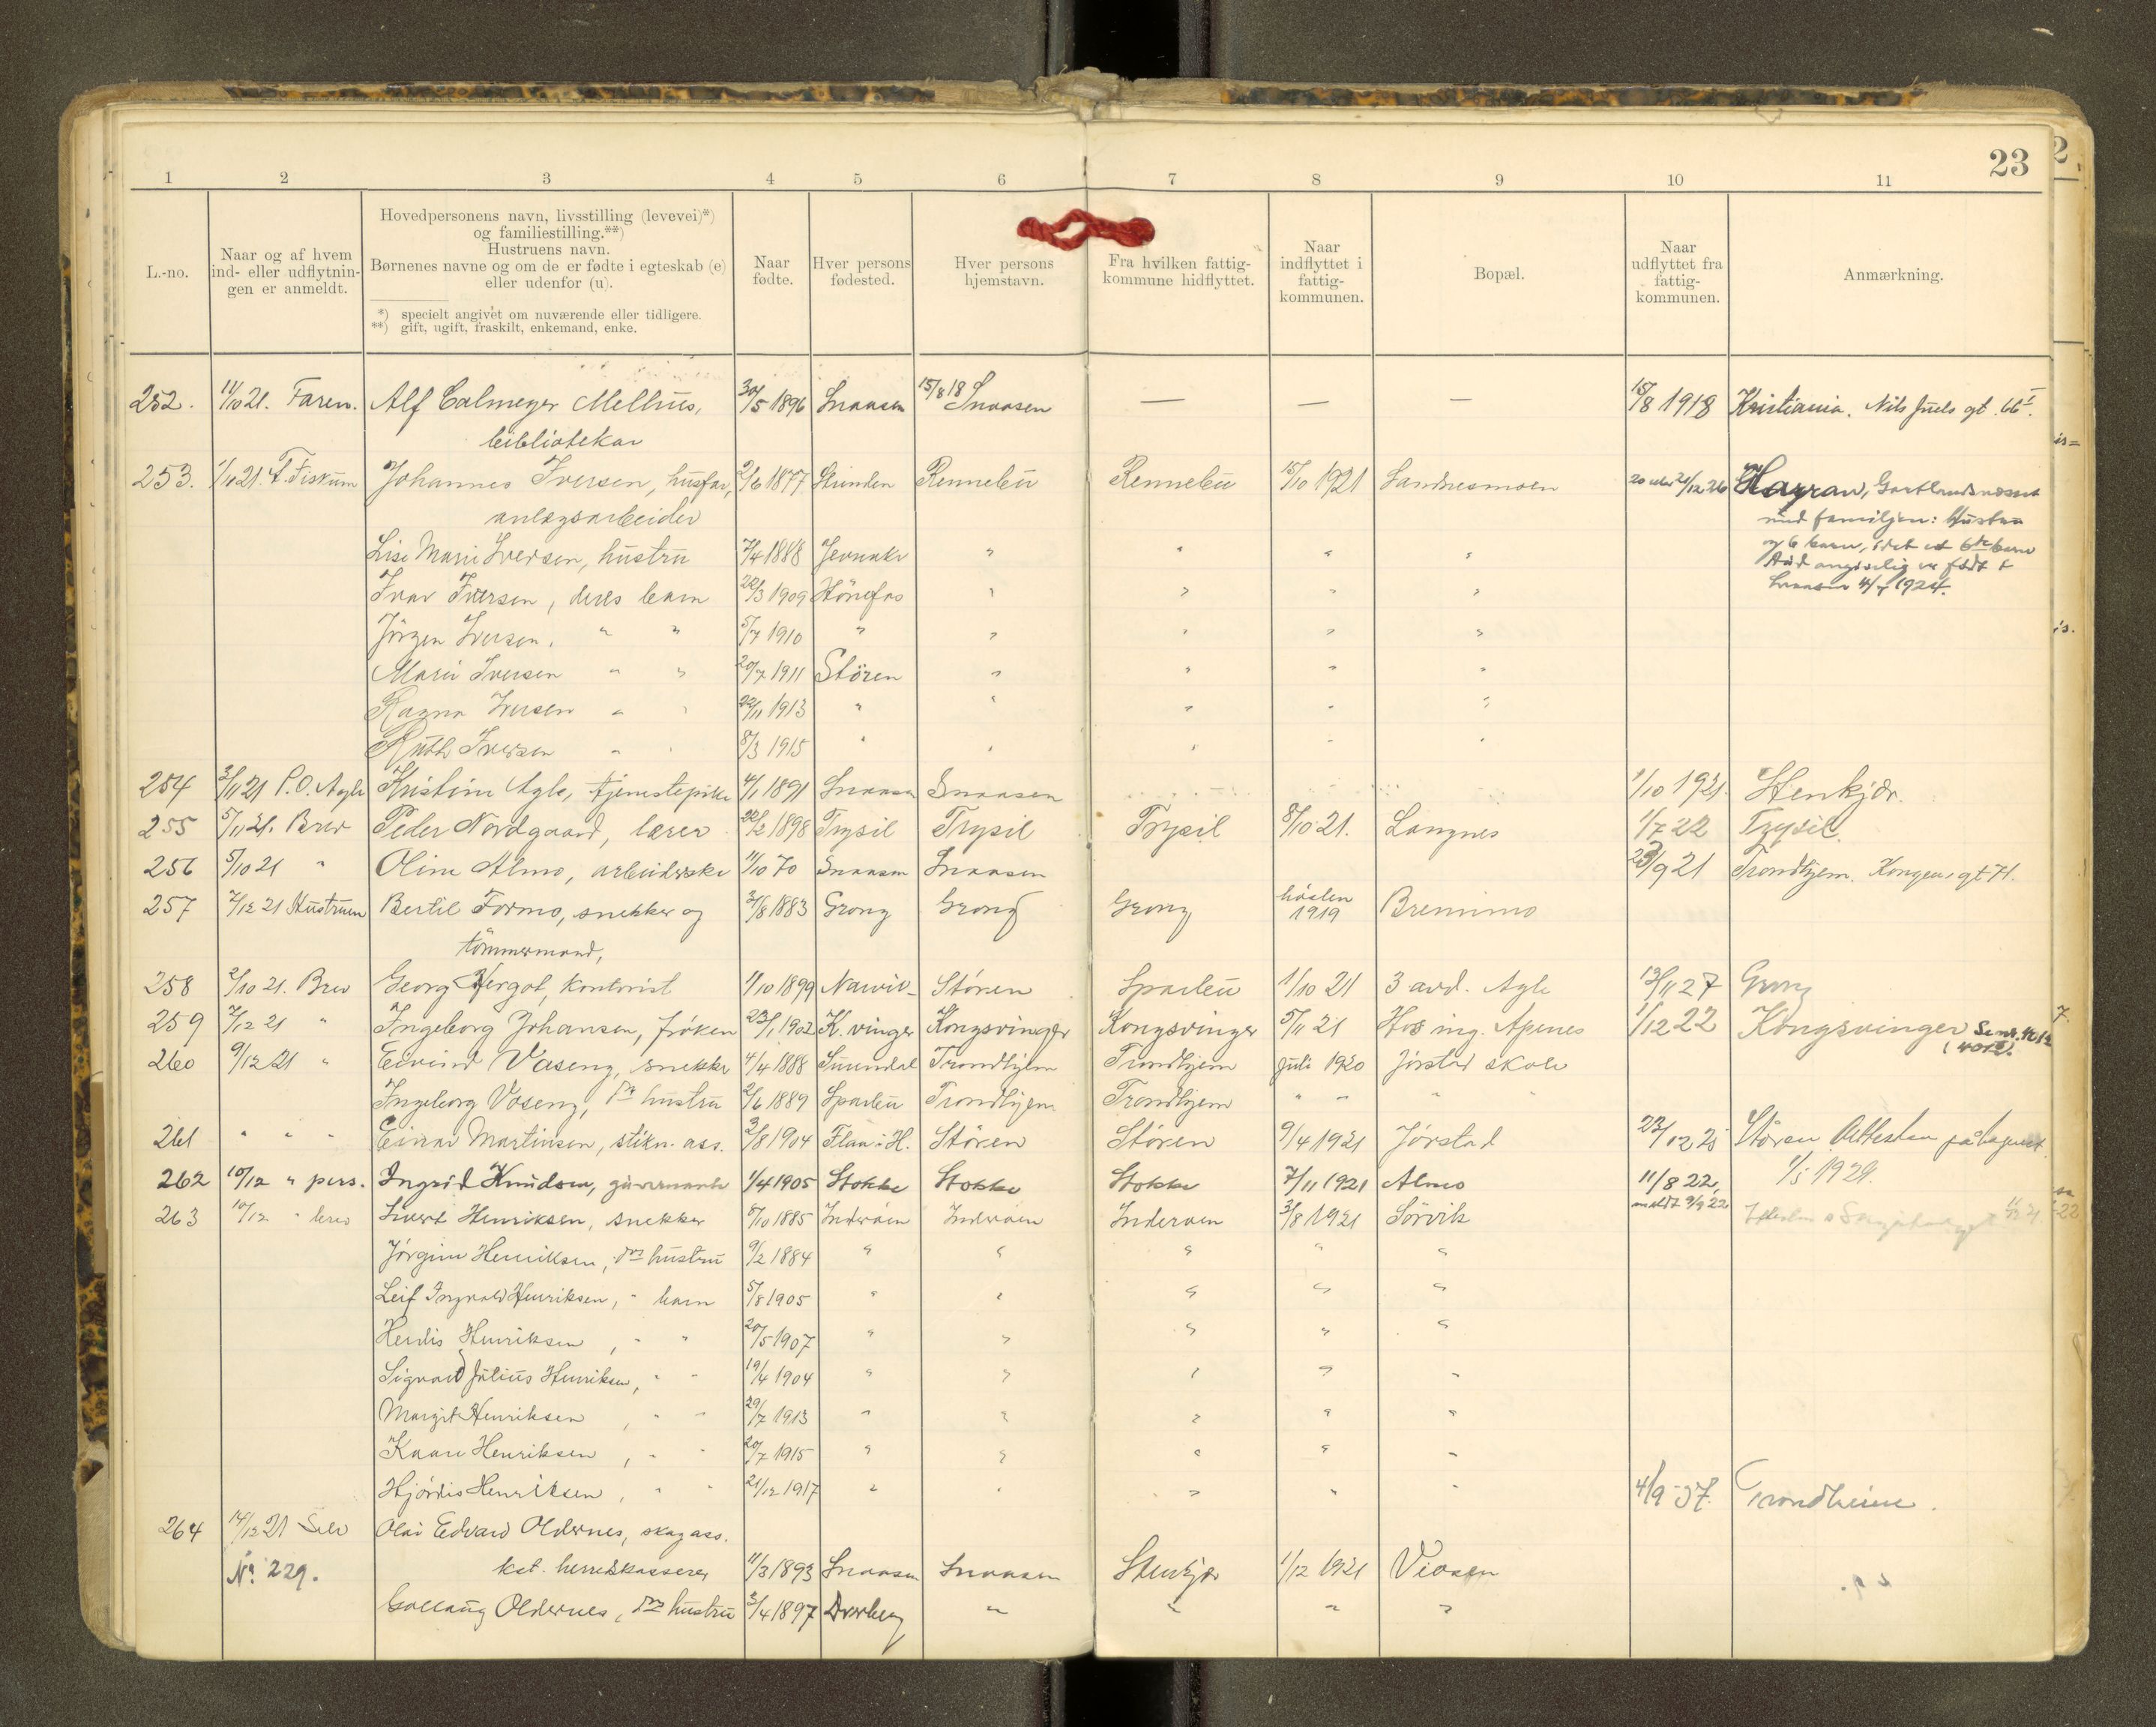 23
1 2 3 4 5 6 7 8 9 10 11
L.-no.
Naar og af hvem
ind- eller udflytnin-
gen er anmeldt.
Hovedpersonens navn, livsstilling (levevei)*)
og familiestilling.**)
Hustruens navn.
Børnenes navne og om de er fødte i egteskab (e)
eller udenfor (u).
*) specielt angivet om nuværende eller tidligere.
**) gift, ugift, fraskilt, enkemand, enke.
Naar
fødte.
Hver persons
fødested.
Hver persons
hjemstavn.
Fra hvilken fattig-
kommune hidflyttet.
Naar
indflyttet i
fattig-
kommunen.
Bopæl.
Naar
udflyttet fra
fattig-
kommunen.
Anmærkning.
252. 11/10 21. Faren. Alf Calmeyer Mellhus, 30/5 1896 Snaasen 15/8 18 Snaasen — — — 15/8 1918 Kristiania. Nils Juels gt. 66 I.
bibliotekar
253. 1/11 21. Fiskum Johannes Iversen, husfar, 2/6 1877 Rennebu Rennebu 15/10 1921 Sandnesmoen 20 eller 21/12 26 Harran, Gartlandsnesset
anlægsarbeider med familjen: Hustru
Lise Marie Iversen, hustru 7/4 1888 Jevnaker " " " " og 6 barn, idet et 6te barn
Ivar Iversen, deres barn 22/3 1909 Hönefos " " " " angivelig er født i
Jörgen Iversen, " " 5/7 1910 " " " " " Snaasen 4/7 1924.
Marie Iversen " " 20/7 1911 Stören " " " "
Ragna Iversen " " 22/11 1913 " " " " "
Ruth Iversen " " 8/3 1915 " " " " "
254 3/11 21 P.O. Agle Kristine Agle, tjenestepike 4/1 1891 Snaasen Snaasen 1/10 1921. Stenkjær.
255 5/11 21. Brev Peder Nordgaard, lærer 22/2 1898 Trysil Trysil Trysil 8/10 21. Langnes 1/7 22 Trysil
256 5/10 21 " Oline Almo, arbeiderske 11/10 70 Snaasen Snaasen 29/9 21 Trondhjem. Kongens gt 71.
257 7/12 21 Hustruen Bertil Formo, snekker og 31/8 1883 Grong Grong Grong hösten 1919 Bremmo
tömmermand,
258 2/10 21. Brev Georg Hergot, kontorist 1/10 1899 Narvik Stören Sparbu 1/10 21 3 avd. Agle 13/11 27 Grong
259 7/12 21 " Ingeborg Johansen, fröken 23/1 1902 K.vinger Kongsvinger Kongsvinger 5/11 21 Hos ing. Apenes 1/12 22 Kongsvinger
260 9/12 21 " Eivind Vaseng, snekker 4/4 1888 Sunndal Trondhjem Trondhjem juli 1920 Jörstad skole
Ingeborg Vaseng, ds hustru 2/6 1889 Sparbu Trondhjem Trondhjem " " " "
261 " " " Einar Martinsen, stikn. ass. 3/8 1904 Flaa i H. Stören Stören 9/4 1921 Jörstad 23/12 25 Stören Attesten paategnet
262 10/12 " pers. Ingrid Knudsen, guvernante 1/4 1905 Stokke Stokke Stokke 7/11 1921 Almo 11/8 22, 1/5 1929.
263 10/12 " brev Sivert Henriksen, snekker 5/10 1885 Inderöen Inderöen Inderöen 3/8 1921 Sörvik meldt 9/9 22
Jörgine Henriksen, ds hustru 9/2 1884 " " " " "
Leif Ingvald Henriksen, " barn 5/8 1905 " " " " "
Herdis Henriksen, " " 20/5 1907 " " " " "
Sigvard Julius Henriksen, " " 19/4 1904 " " " " "
Margit Henriksen, " " 29/7 1913 " " " " "
Kaare Henriksen, " " 20/7 1915 " " " " "
Hjördis Henriksen, " " 21/12 1917 " " " " " 4/9 37. Trondheim.
264 14/12 21 Selv Olai Edvard Oldernes, skogass.
No. 229. kst. herredskasserer 11/3 1893 Snaasen Snaasen Stenkjær 1/12 1921 Viosen
Oldernes, ds hustru 3/4 1897 Dverberg " " " "